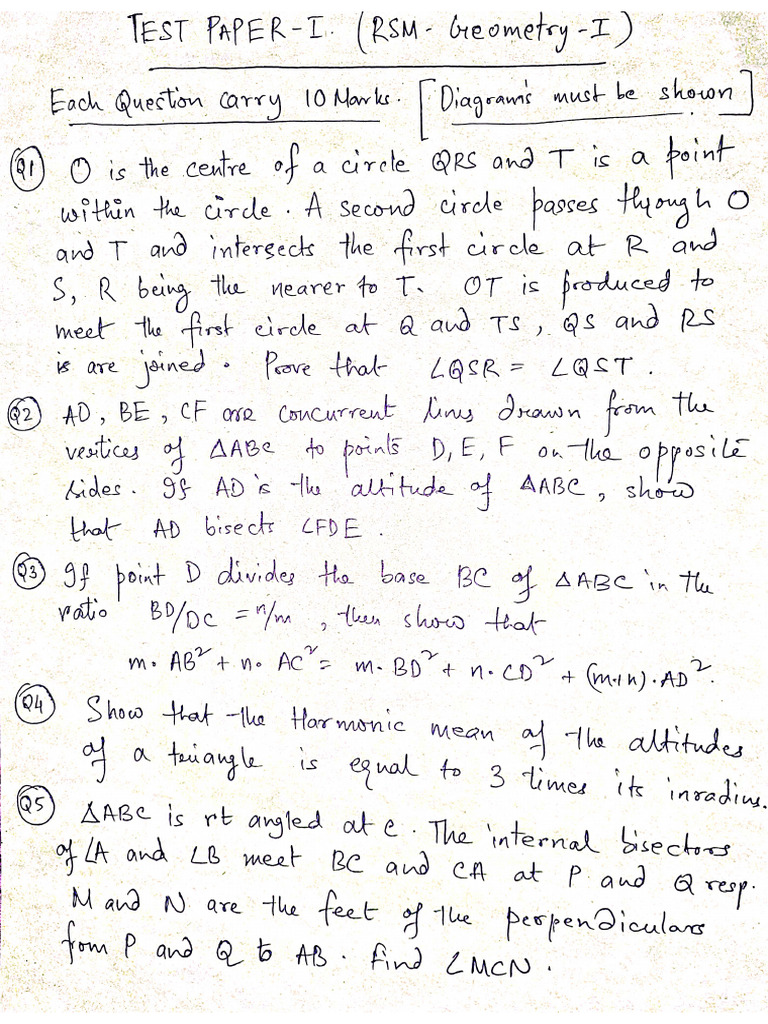 TEST PAPER-I. (RSM- Geometry-I)
Each Question carry 10 Marks. [Diagrams must be shown]
Q1 O is the centre of a circle QRS and T is a point
within the circle. A second circle passes through O
and T and intersects the first circle at R and
S, R being the nearer to T. OT is produced to
meet the first circle at Q and TS, QS and RS
are joined. Prove that ∠QSR = ∠QST.
Q2 AD, BE, CF are concurrent lines drawn from the
vertices of ΔABC to points D, E, F on the opposite
sides. If AD is the altitude of ΔABC, show
that AD bisects ∠FDE.
Q3 If point D divides the base BC of ΔABC in the
ratio BD/DC = n/m, then show that
m·AB² + n·AC² = m·BD² + n·CD² + (m+n)·AD².
Q4 Show that the Harmonic mean of the altitudes
of a triangle is equal to 3 times its inradius.
Q5 ΔABC is rt angled at C. The internal bisectors
of ∠A and ∠B meet BC and CA at P and Q resp.
M and N are the feet of the perpendiculars
from P and Q to AB. Find ∠MCN.